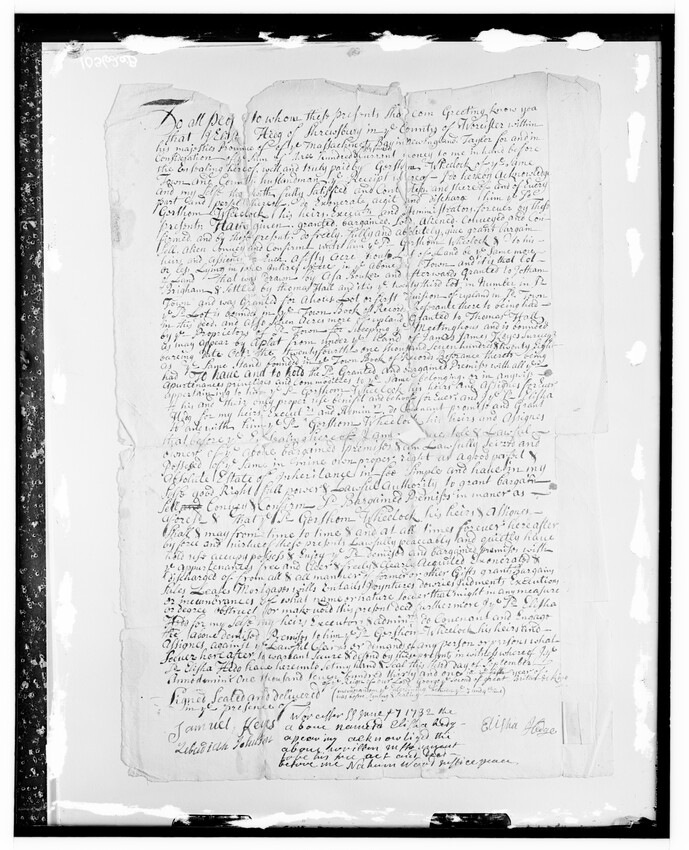 To all People to whom thes presents Shall com Greeting know yea
that I Elisha Hedg of Shrewsbury in ye County of Worcester within
his majesties Province of ye Massachusetts Bay in New England Taylor for and in
Consideration of ye Sum of three hundred Current money to me in hand before
the Ensealing hereof well and truly paid by Gershom Wheelock of ye Same
Town and County husbandman ye Receipt hereof I do hereby Acknowledge
and my self fully Satisfied and Contented and there of and of Every
part and persel thereof do Exonerate aquit and Discharg him ye sd
Gershom Wheelock his heirs Executrs and Administrators forever by thes
presents Have given granted bargained Sold Aliened Conveyed and Con
firmed and by these presents do freely fully and absolutely give grant bargain
Sell Alien Convey and Confirm unto him ye sd Gershom Wheelock & to his
heirs and Assignes a fifty Acre of Land be ye same more
or les Lying in ye Town and it is that lot
of Land that was drawn by Asa and afterwards Granted to Jotham
Brigham & setled by thomas Hall and it is ye twenty third lot in Number in sd
Town and was granted for a hous Lot or first division of upland in sd Town
ye sd Lot is bounded in ye Town Book of Records Referance there to being had
In this deed and also seven acres more of upland Granted to Thomas Hall
by ye Proprietors of sd Town for ye Meetinghous and is bounded
as may appear by a plat from under ye hand of James Keyes Survey
baring date Octr the Twentyfourth one thousand seven hundred & twenty Eight
as ye Same Stand in ye Town Book of Records Referance thereto being
had To have and to hold the sd Granted and Bargained Premises with all ye
apurtenances priveleges and commodities to ye same belonging or in any wise
appertaining to him ye sd Gershom Wheelock his heirs & Assignes for Ever
to his and their only proper use benifit and behoof for Ever and I ye sd Elisha
Hedg for my heirs Executrs and Adminrs do Covenant promise and Grant
to and with him ye sd Gershom Wheelock his heirs and Assignes
that before ye Ensealing here of I am ye true sole & Lawful
owner of ye above bargained premises & am Lawfully seized and
Possesed of ye Same in mine own proper right as a good parfect &
Absolute Estate of Inheritance in fee Simple and have in my
self good Right full power & Lawful Authority to grant bargain
Sell Convey & Confirm sd Bargained Premises in maner as
afores'd & that ye sd Gershom Wheelock his heirs & Assigns
Shall & may from time to time & and at all times forever hereafter
by force and virtue of these presents Lawfully peaceably and quietly have
hold use occupy posses & Enjoy ye sd Demised and bargained premises with
ye appurtenances free and Clear & freely & clearly acquited Exonerated &
Discharged of from all & all manner of former or other Gifts grants bargains
Sales Leases Mortgages wills Entails Joyntures Dowries Judments Executions
or incumbrances of what name or nature so ever that might in any measure
or degree obstruct or make void this present deed furthermore I ye sd Elisha
Hedg for my self my heirs Executors & adminrs do Covenant and Engage
the above demised Premises to him ye sd Gershom Wheelock his heirs and
Assignes against ye Lawful Claims or demands of any person or persons what
soever hereafter to warrant secure & defend by these presents in witness whereof I ye
sd Elisha Hedg have hereunto set my hand & seal this second day of September
Annodomini One thousand seven hundred thirty and one & in the fifth year of
Signed Sealed and delivered
in ye presence of
Samuel Keys
Zebediah Johnson
Worcester SS June ye 7 1732 the
above named Elisha Hedg
apearing acknowlidged the
above written instrument
to be his free act and deed
before me Nahum Ward Justice peace
Elisha Hedge